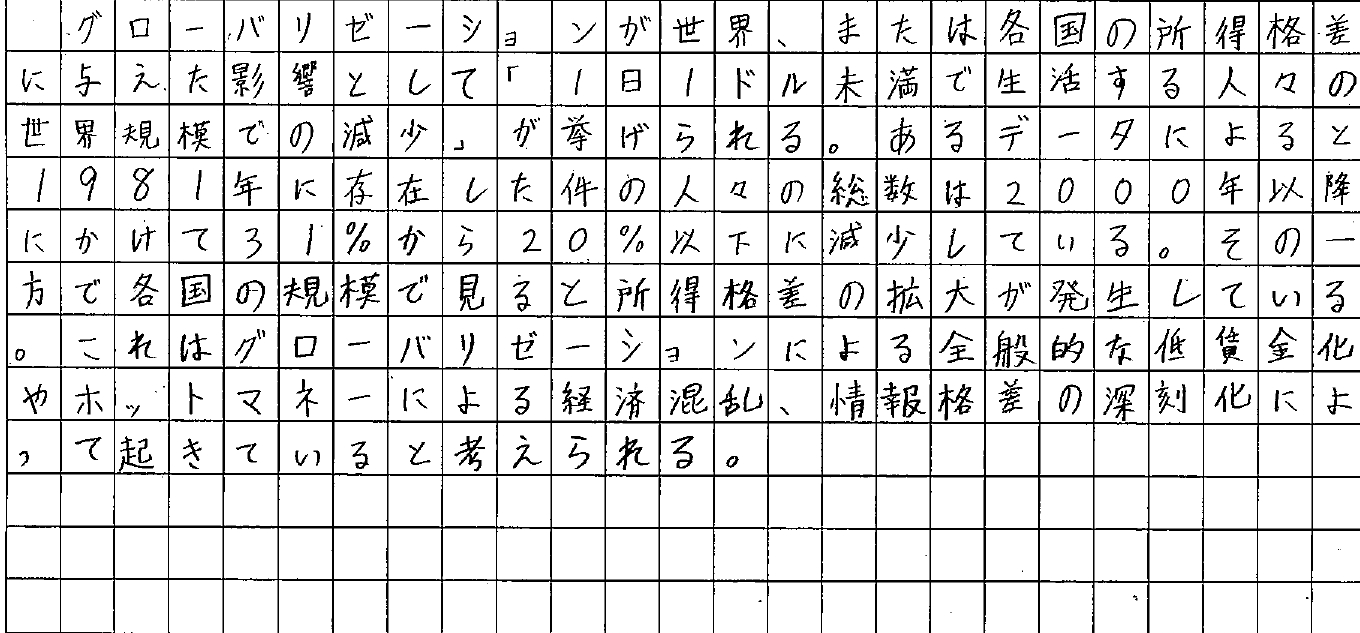 グローバリゼーションが世界、または各国の所得格差
に与えた影響として「1日1ドル未満で生活する人々の
世界規模での減少」が挙げられる。あるデータによると
1981年に存在した件の人々の総数は2000年以降
にかけて31%から20%以下に減少している。その一
方で各国の規模で見ると所得格差の拡大が発生している
。これはグローバリゼーションによる全般的な低賃金化
やホットマネーによる経済混乱、情報格差の深刻化によ
って起きていると考えられる。